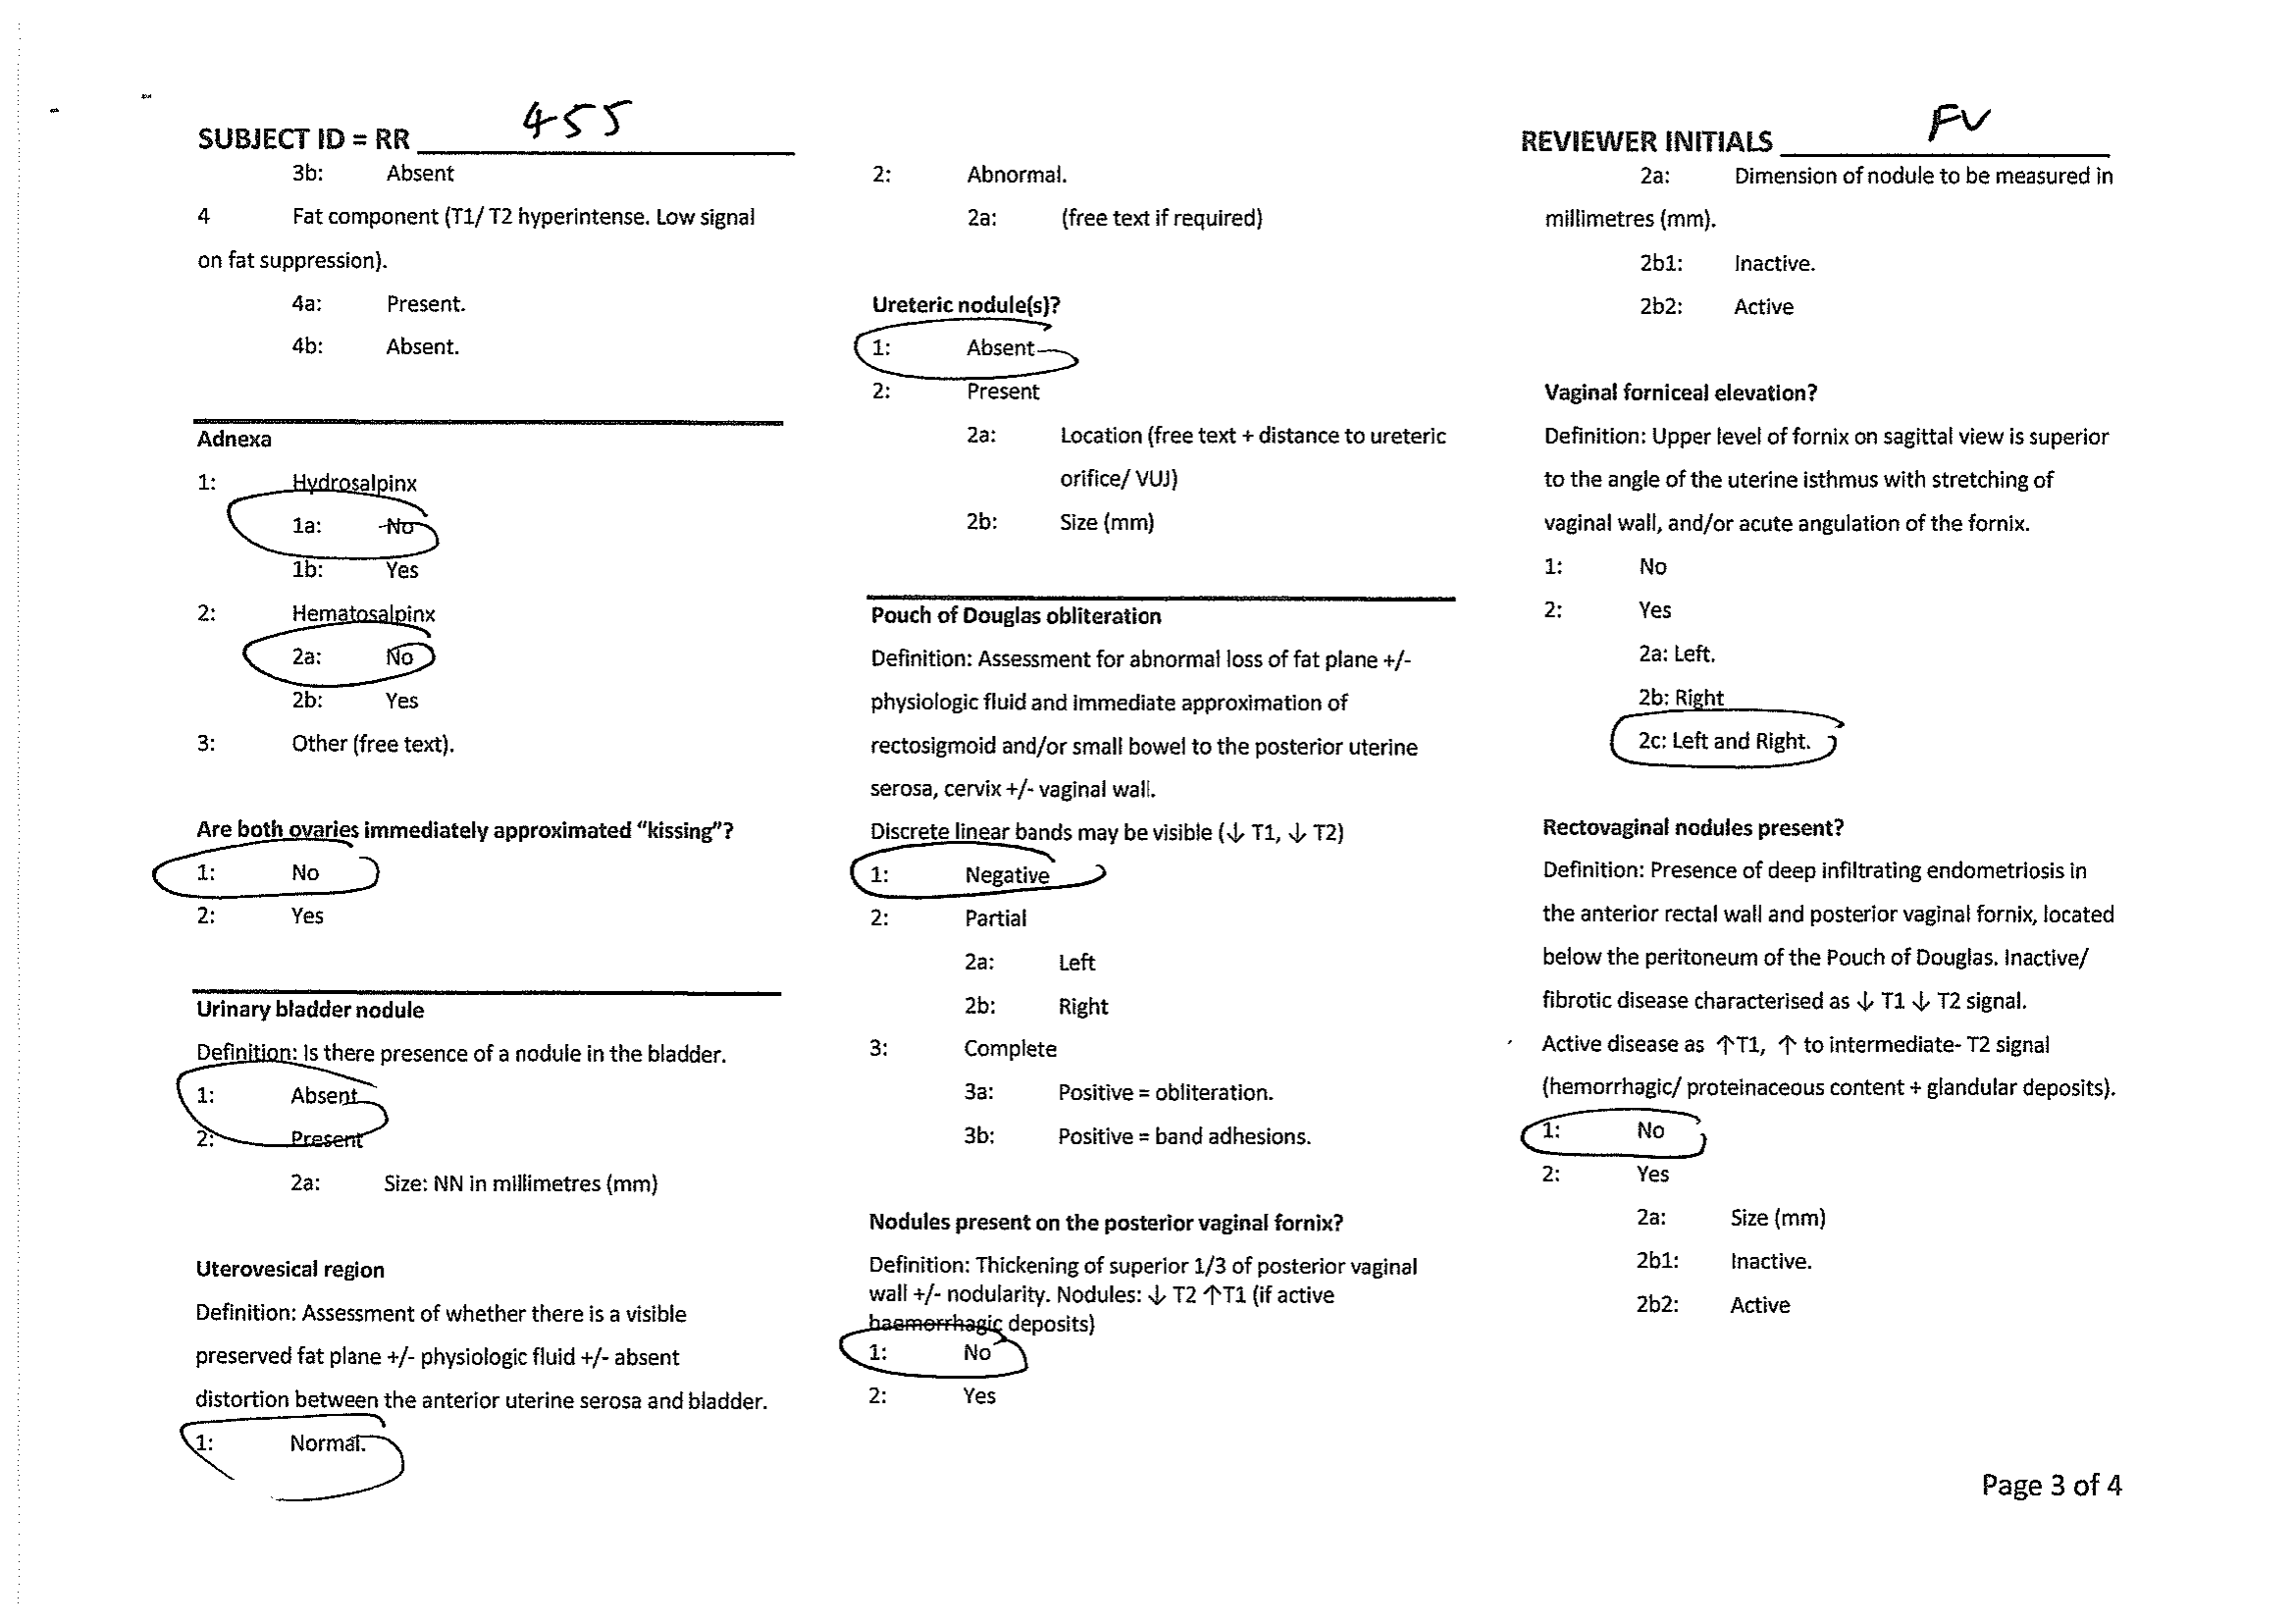 SUBJECT ID = RR 455
3b: Absent
4 Fat component (T1/ T2 hyperintense. Low signal
on fat suppression).
4a: Present.
4b: Absent.
Adnexa
1: Hydrosalpinx
1a: No
1b: Yes
2: Hematosalpinx
2a: No
2b: Yes
3: Other (free text).
Are both ovaries immediately approximated “kissing”?
1: No
2: Yes
Urinary bladder nodule
Definition: Is there presence of a nodule in the bladder.
1: Absent
2: Present
2a: Size: NN in millimetres (mm)
Uterovesical region
Definition: Assessment of whether there is a visible
preserved fat plane +/- physiologic fluid +/- absent
distortion between the anterior uterine serosa and bladder.
1: Normal.
2: Abnormal.
2a: (free text if required)
Ureteric nodule(s)?
1: Absent
2: Present
2a: Location (free text + distance to ureteric
orifice/ VUJ)
2b: Size (mm)
Pouch of Douglas obliteration
Definition: Assessment for abnormal loss of fat plane +/-
physiologic fluid and immediate approximation of
rectosigmoid and/or small bowel to the posterior uterine
serosa, cervix +/- vaginal wall.
Discrete linear bands may be visible (↓ T1, ↓ T2)
1: Negative
2: Partial
2a: Left
2b: Right
3: Complete
3a: Positive = obliteration.
3b: Positive = band adhesions.
Nodules present on the posterior vaginal fornix?
Definition: Thickening of superior 1/3 of posterior vaginal
wall +/- nodularity. Nodules: ↓ T2 ↑T1 (if active
haemorrhagic deposits)
1: No
2: Yes
REVIEWER INITIALS FV
2a: Dimension of nodule to be measured in
millimetres (mm).
2b1: Inactive.
2b2: Active
Vaginal forniceal elevation?
Definition: Upper level of fornix on sagittal view is superior
to the angle of the uterine isthmus with stretching of
vaginal wall, and/or acute angulation of the fornix.
1: No
2: Yes
2a: Left.
2b: Right
2c: Left and Right.
Rectovaginal nodules present?
Definition: Presence of deep infiltrating endometriosis in
the anterior rectal wall and posterior vaginal fornix, located
below the peritoneum of the Pouch of Douglas. Inactive/
fibrotic disease characterised as ↓ T1 ↓ T2 signal.
Active disease as ↑T1, ↑ to intermediate- T2 signal
(hemorrhagic/ proteinaceous content + glandular deposits).
1: No
2: Yes
2a: Size (mm)
2b1: Inactive.
2b2: Active
Page 3 of 4